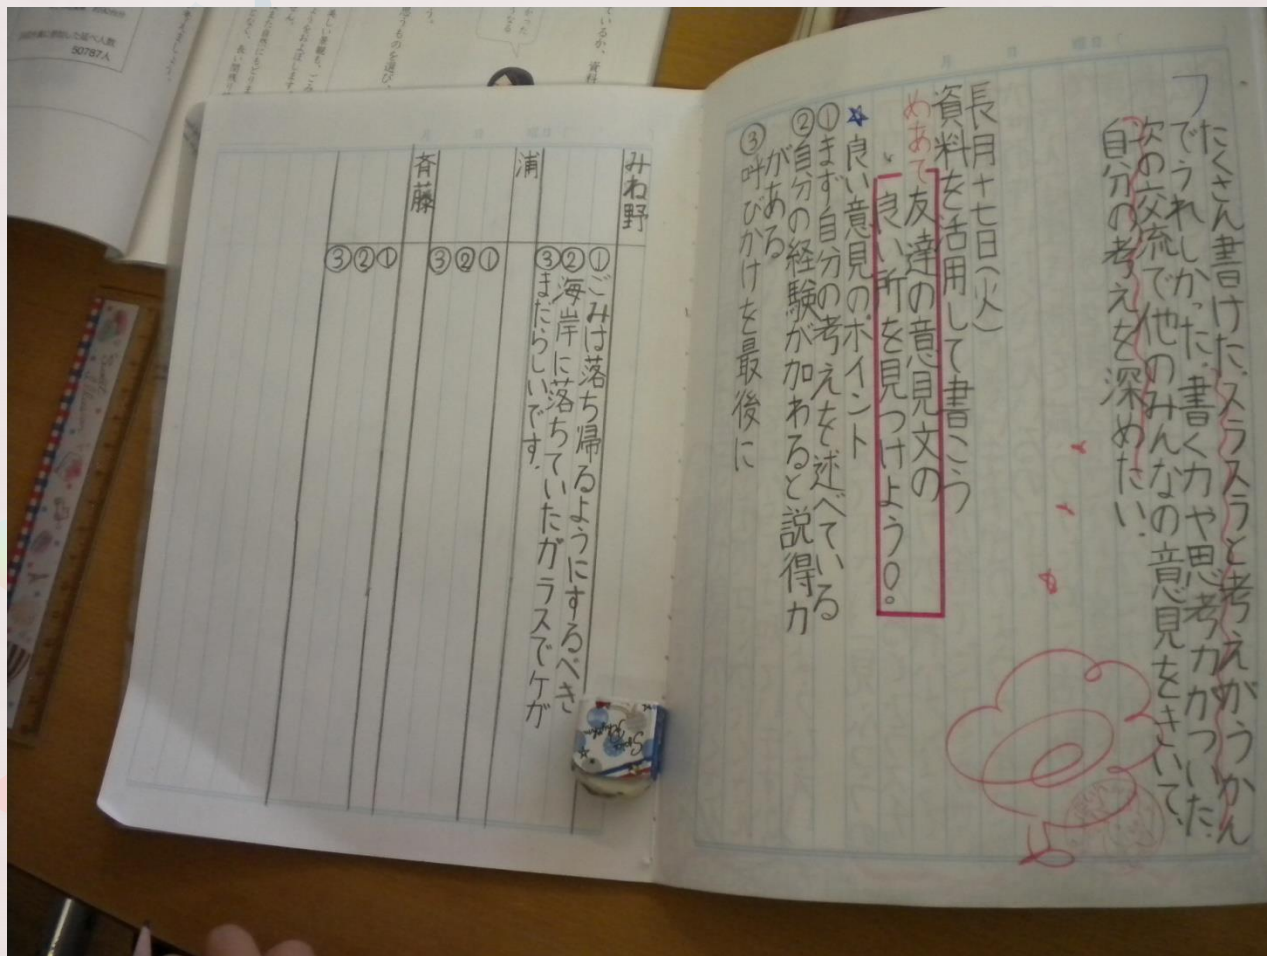 フ
たくさん書けた。スラスラと考えがうかん
でうれしかった。書く力や思考力がついた。
次の交流で他のみんなの意見をきいて、
自分の考えを深めたい。
長月十七日(火)
資料を活用して書こう
めあて 友達の意見文の
良い所を見つけよう!。
☆良い意見のポイント
①まず自分の考えを述べている
②自分の経験が加わると説得力
がある
③呼びかけを最後に
月 日 曜日
みね野
①ごみは落ち帰るようにするべき
②海岸に落ちていたガラスでケガ
③またらしいです。
浦
①
②
③
斉藤
①
②
③
50787人